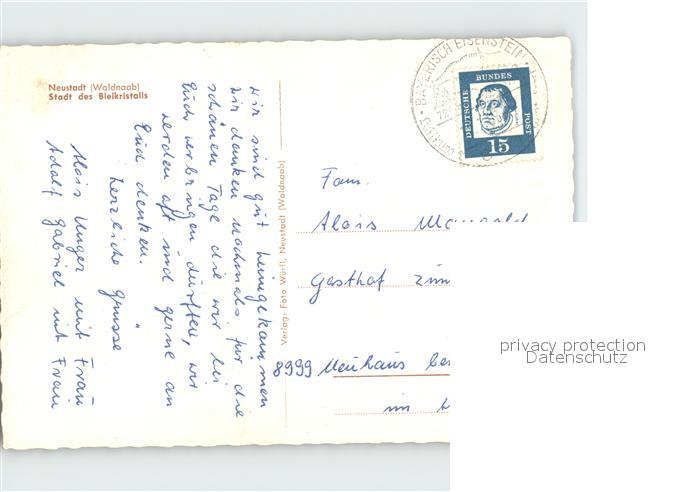 Neustadt (Waldnaab)
Stadt des Bleikristalls
wir sind gut heimgekommen
wir danken nochmals für die
schönen Tage die wir bei
Euch verbringen durften, wir
werden oft und gerne an
Euch denken.
Herzliche Grüsse
Alois Unger mit Frau
Adolf Gabriel mit Frau
Verlag: Foto Württ, Neustadt (Waldnaab)
BAYERISCH EISENSTEIN
DEUTSCHE BUNDES POST
15
Fam.
Alois
Gasthof zum
8999 Neuhaus
im
privacy protection
Datenschutz